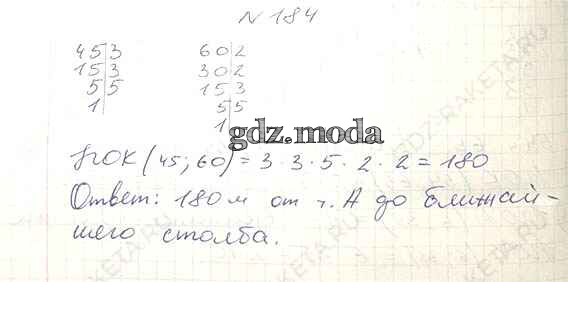 N 184
45 3 60 2
15 3 30 2
5 5 15 3
1 5 5
1
gdz.moda
НОК (45; 60) = 3 · 3 · 5 · 2 · 2 = 180
Ответ: 180 м от т. А до ближай-
шего столба.